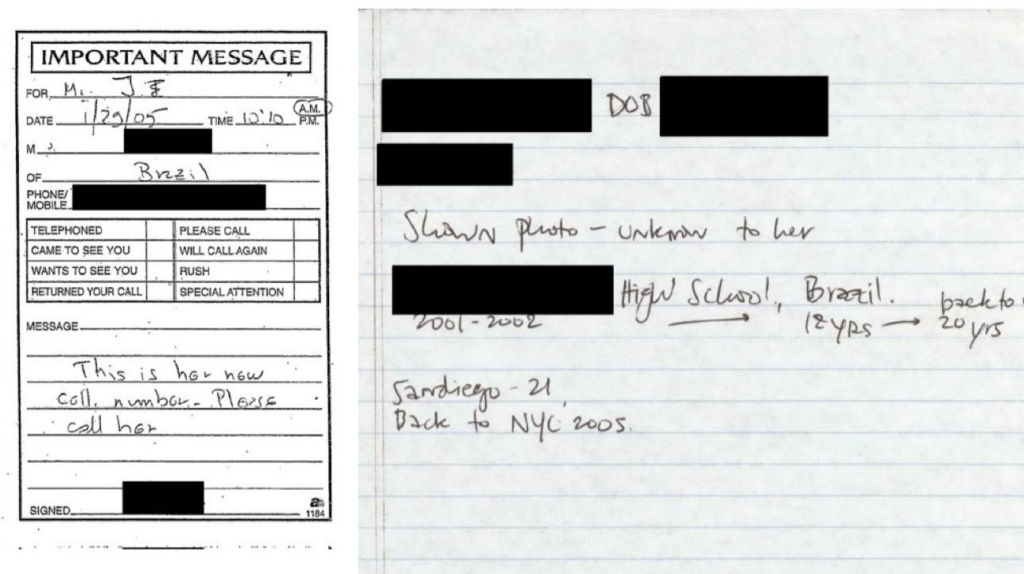 IMPORTANT MESSAGE
FOR Mr. J.E
DATE 1/29/05 TIME 10:10 A.M.
P.M.
M
OF Brazil
PHONE/
MOBILE
TELEPHONED PLEASE CALL
CAME TO SEE YOU WILL CALL AGAIN
WANTS TO SEE YOU RUSH
RETURNED YOUR CALL SPECIAL ATTENTION
MESSAGE
This is her new
cell. number. Please
call her
SIGNED
1184
DOB
Shown photo - unknown to her
High School, Brazil. back to
2001-2002 → 12 yrs → 20 yrs
Sandiego - 21
Back to NYC 2005.